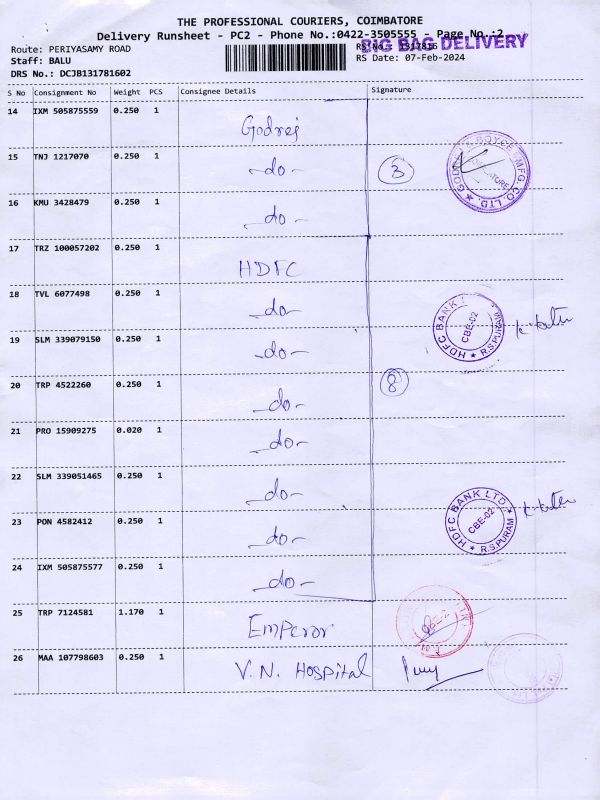 THE PROFESSIONAL COURIERS, COIMBATORE
Delivery Runsheet - PC2 - Phone No.:0422-3505555 - Page No.:2
BIG BAG DELIVERY
Route: PERIYASAMY ROAD RS No.: 1317816
Staff: BALU RS Date: 07-Feb-2024
DRS No.: DCJB131781602
S No Consignment No Weight PCS Consignee Details Signature
14 IXM 505875559 0.250 1 Godrej
15 TNJ 1217070 0.250 1 -do- 3
GODREJ & BOYCE MFG CO. LTD.
16 KMU 3428479 0.250 1 -do-
17 TRZ 100057202 0.250 1 HDFC
18 TVL 6077498 0.250 1 -do-
HDFC BANK CBE-02 R.S PURAM
19 SLM 339079150 0.250 1 -do-
20 TRP 4522260 0.250 1 -do- 8
21 PRO 15909275 0.020 1 -do-
22 SLM 339051465 0.250 1 -do-
HDFC BANK LTD CBE-02 R.S PURAM
23 PON 4582412 0.250 1 -do-
24 IXM 505875577 0.250 1 -do-
25 TRP 7124581 1.170 1 Emperor
26 MAA 107798603 0.250 1 V.N. Hospital